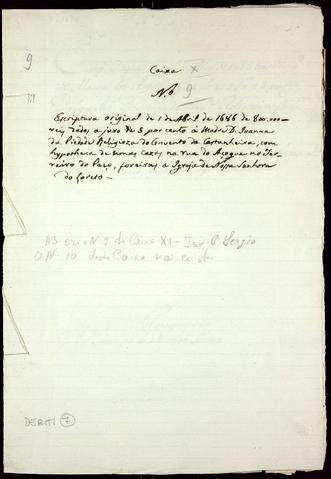 9
Caixa X
N.º 9
Escriptura original de 1 de Abril de 1686 de 800:000
reis, dados a juro de 5 por cento á Madre D. Joanna
da Piedade Religioza do Convento da Castanheira, com
hypotheca de humas Cazas na rua do Açougue no Ter-
reiro do Paço, foreiras á Igreja de Nossa Senhora
do Loreto. –
N 9 da Caixa XI – P. Sergio
O N. 10 desta Caixa não existe
7